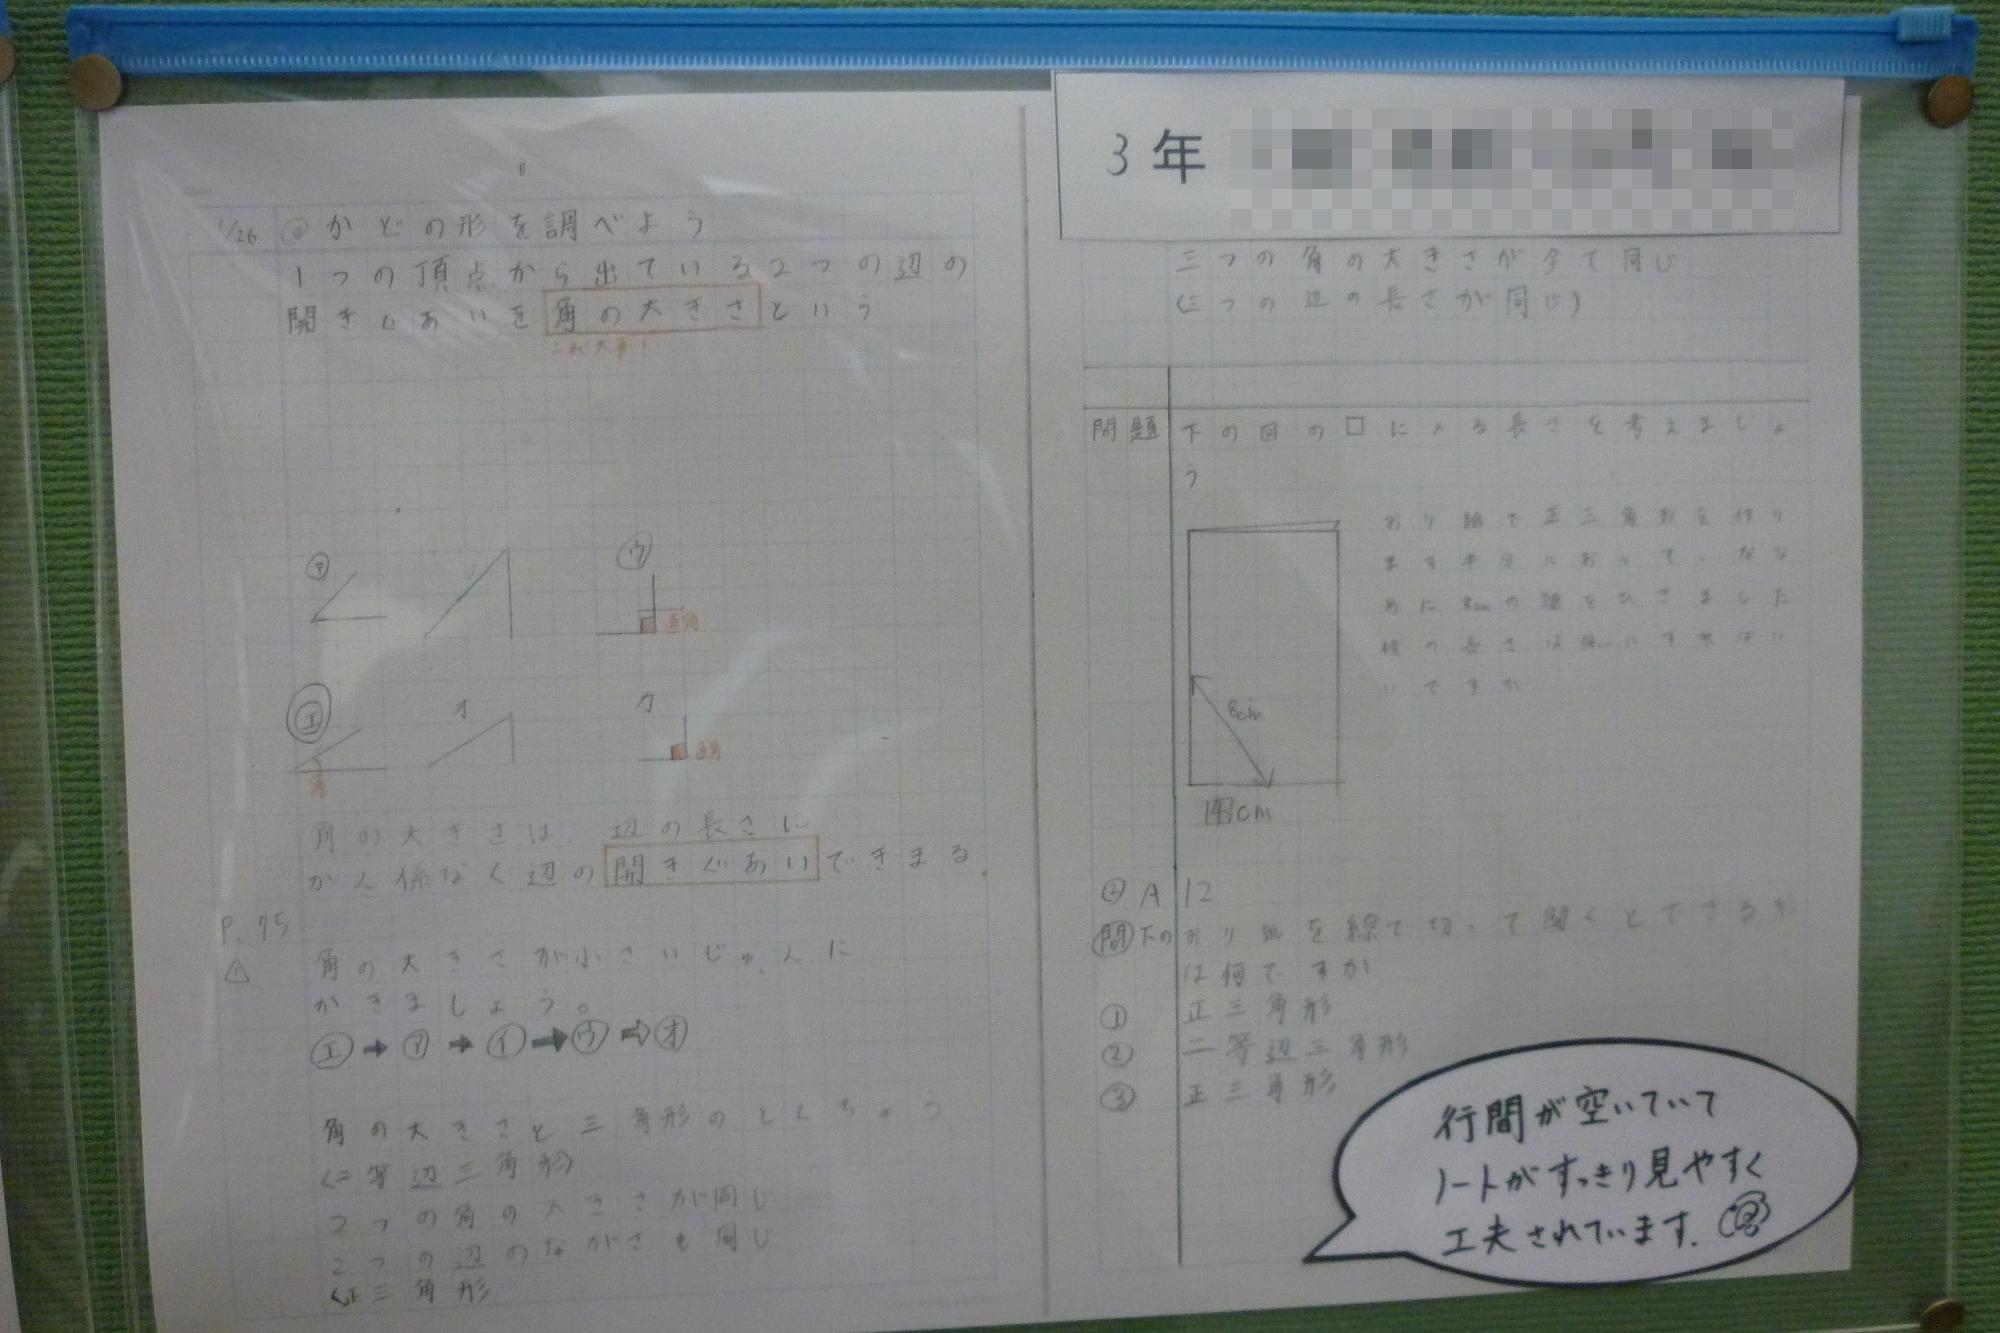 1/26 めかどの形を調べよう
1つの頂点から出ている2つの辺の
開きぐあいを角の大きさという
これ大事!
ア
ウ
直角
エ
オ
カ
角
直角
角の大きさは、辺の長さに
かん係なく辺の開きぐあいできまる。
P.95
△1
角の大きさが小さいじゅんに
かきましょう。
エ➡ア➡イ➡ウ⇨オ
角の大きさと三角形のとくちょう
〈二等辺三角形〉
2つの角の大きさが同じ
2つの辺のながさも同じ
〈正三角形
3年
三つの角の大きさが全て同じ
(三つの辺の長さが同じ)
問題 下の図の□による長さを考えましょ
う
おり紙で正三角形を作り
ます半分におって、なな
めに8cmの線をひきました
横の長さは何cmにすればい
いですか
8cm
4cm
A 12
問 下のおり紙を線で切って開くとできる形
は何ですか
① 正三角形
② 二等辺三角形
③ 正三角形
行間が空いていて
ノートがすっきり見やすく
工夫されています。